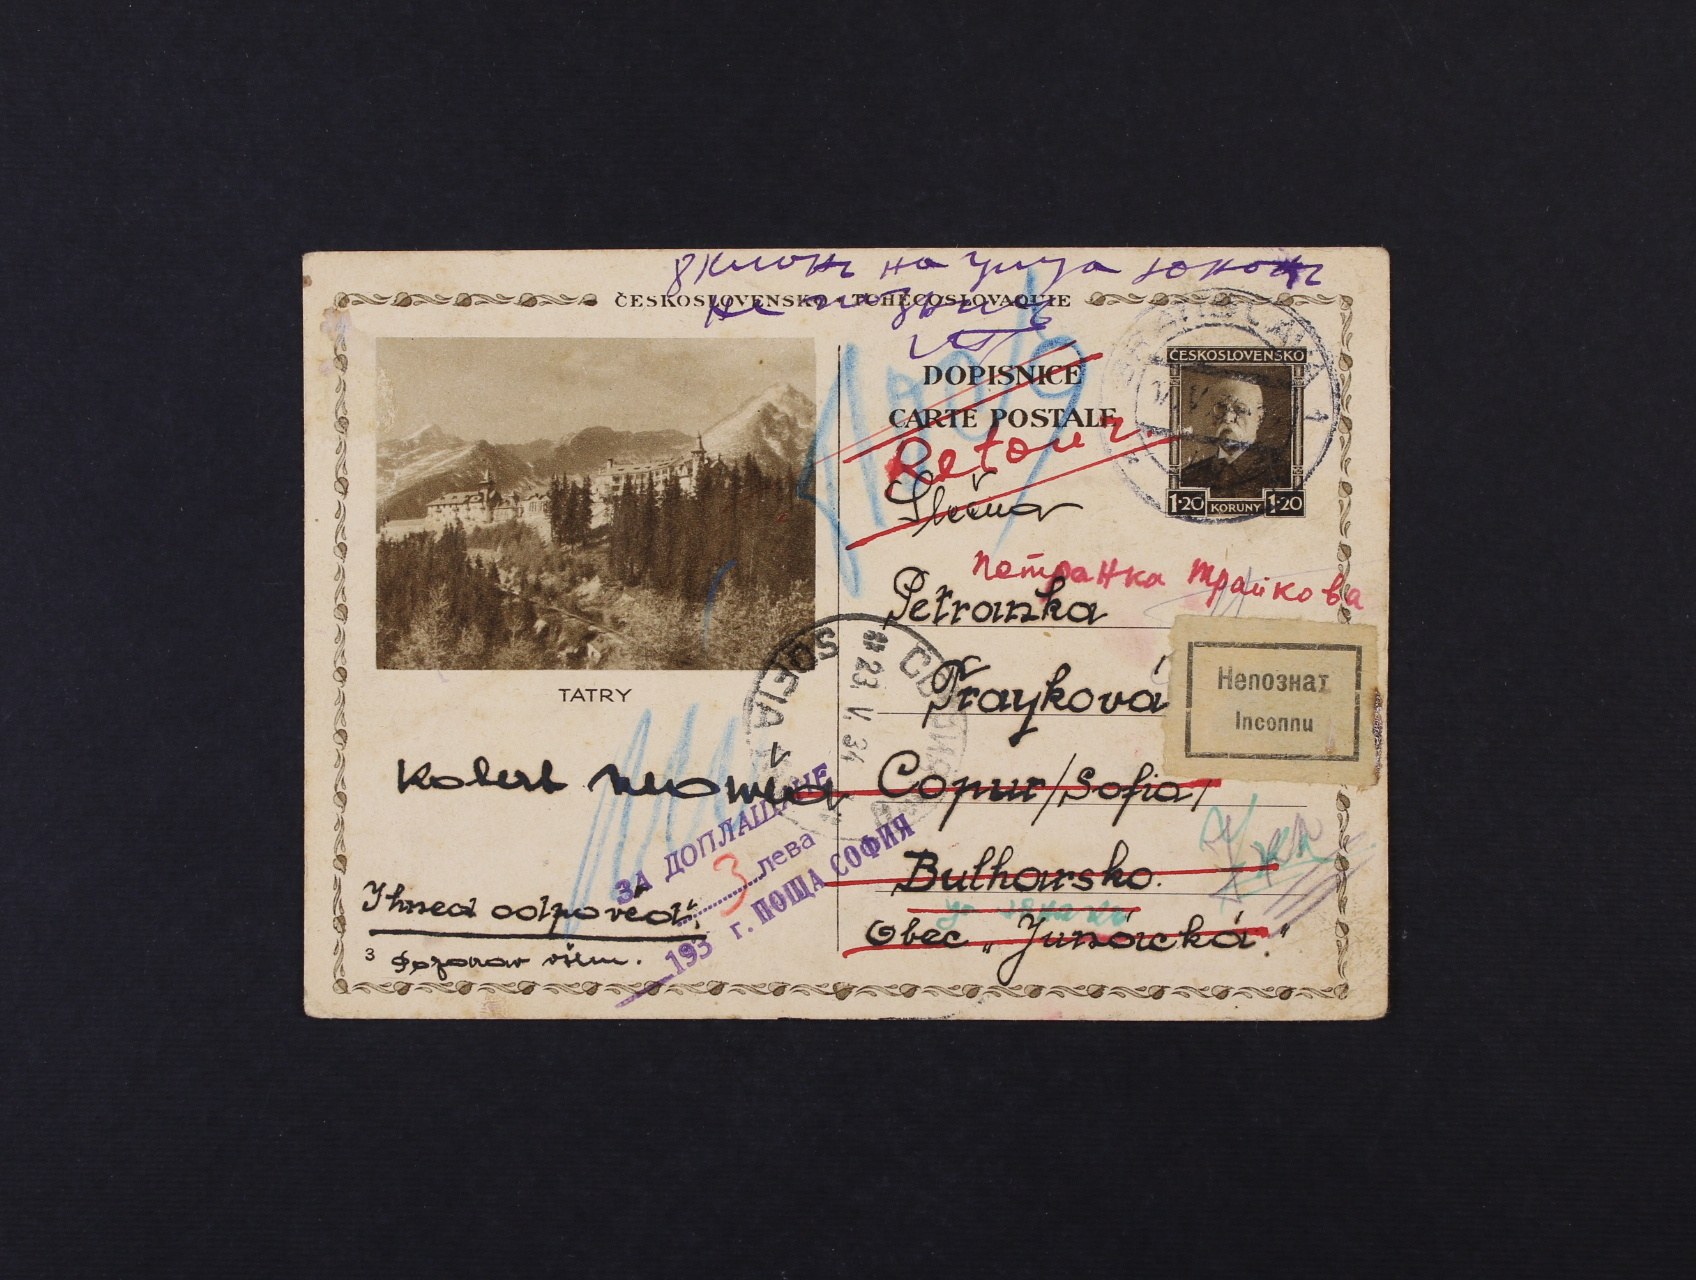 на улица
ČESKOSLOVENSKO - TCHÉCOSLOVAQUIE
DOPISNICE
CARTE POSTALE
Retour.
Slečna
Петранка Трайкова
Petranka
Trayková
/Sofia/
Bulharsko.
Obec „Junácká."
BRATISLAVA 1
ČESKOSLOVENSKO
1·20 KORUNY 1·20
Непознат
Inconnu
СОФИЯ
23. V. 34
SOFIA
TATRY
Robert
ЗА ДОПЛАЩАНЕ
3 лева
193 г. ПОЩА СОФИЯ
Ihned odpověd!
3
Pozdrav všem.